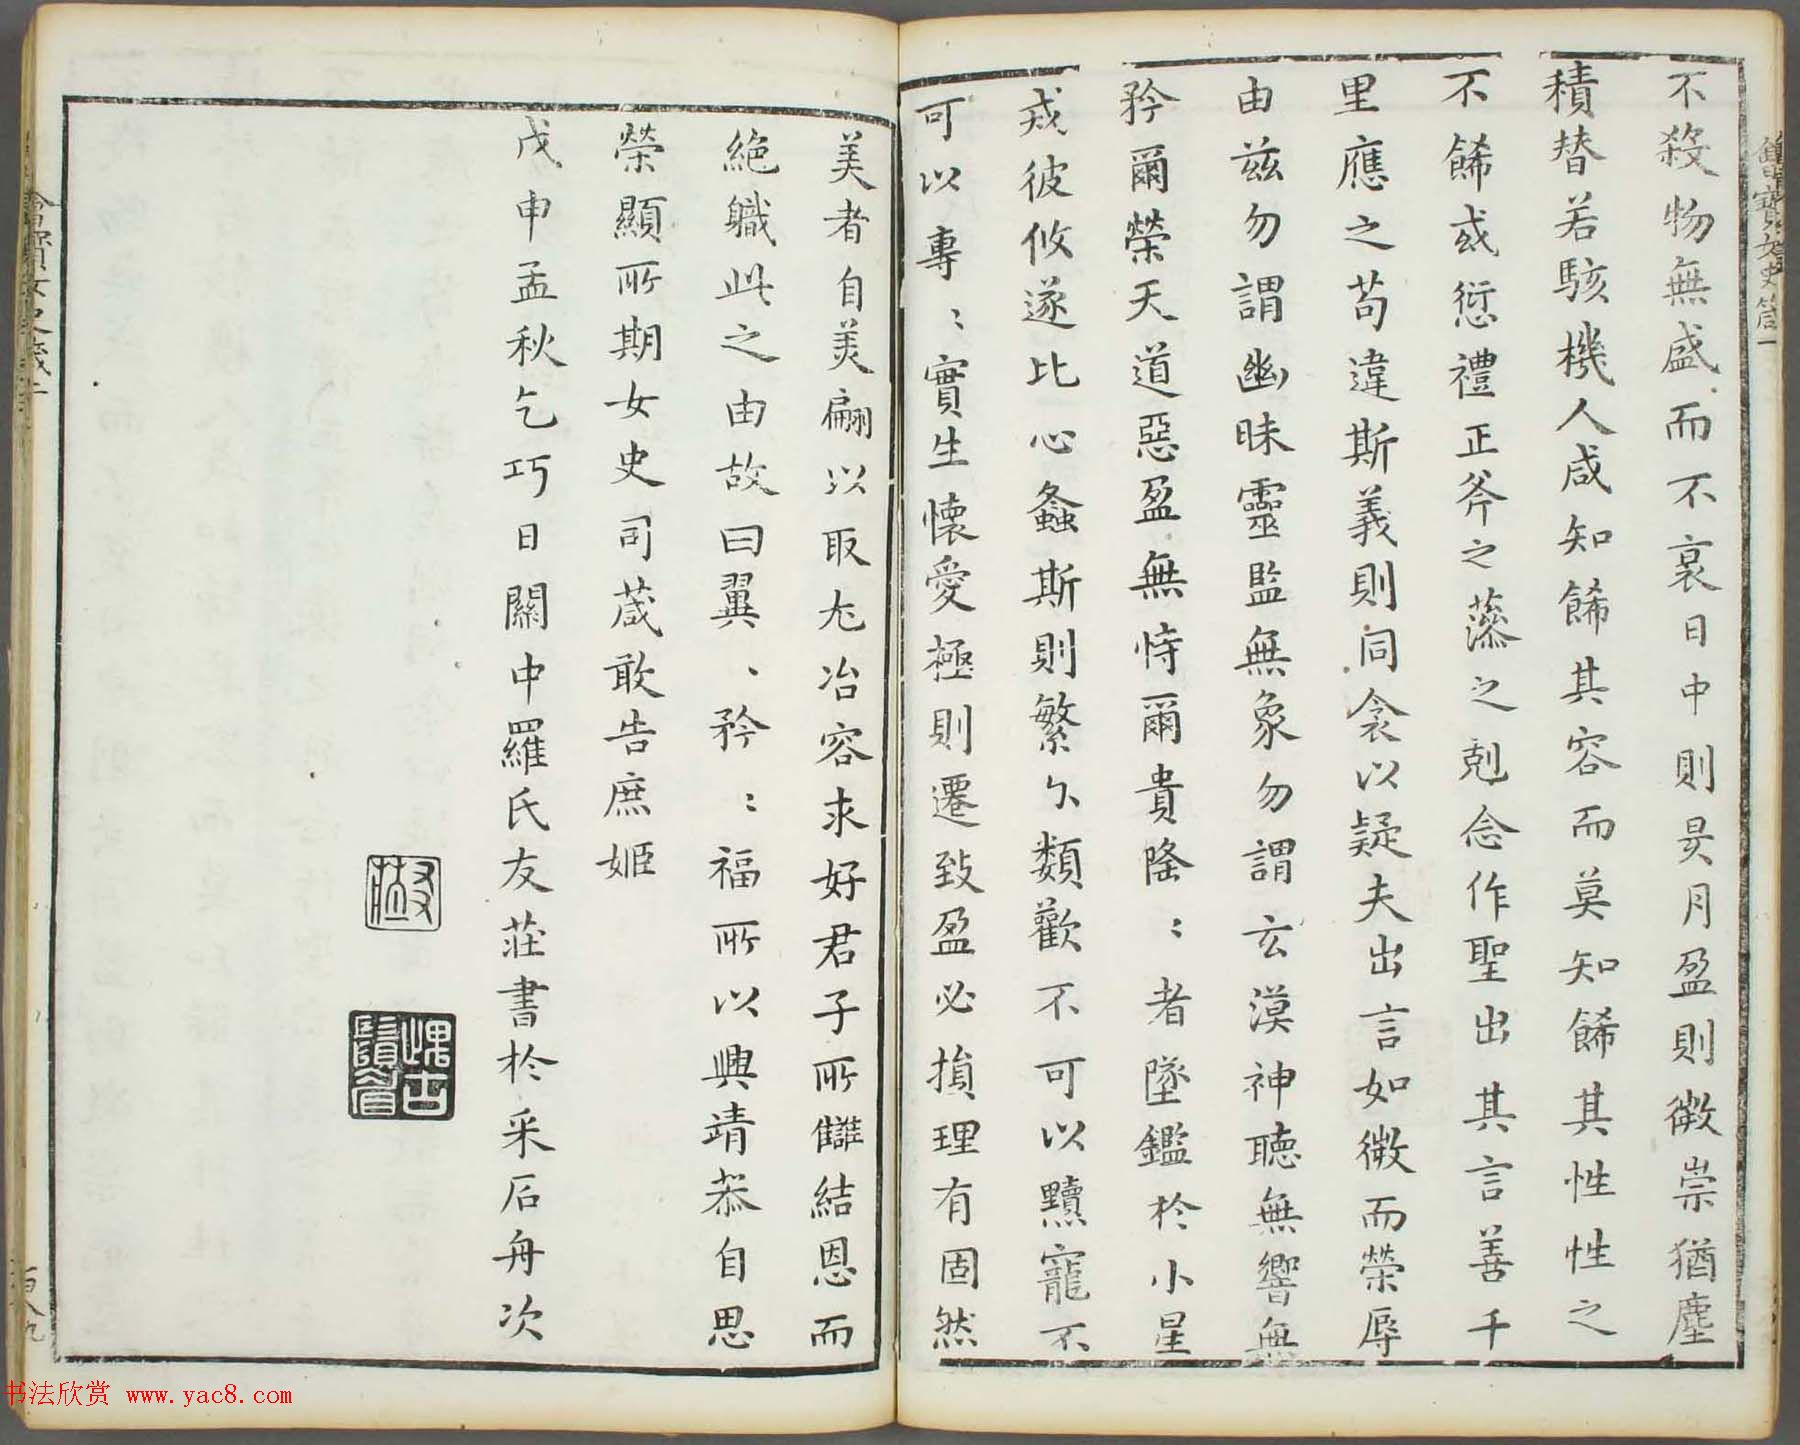 不殺物無盛而不衰日中則昃月盈則微崇猶塵
積替若駭機人咸知餙其容而莫知餙其性性之
不餙或愆禮正斧之藻之剋念作聖出其言善千
里應之苟違斯義則同衾以疑夫出言如微而榮辱
由玆勿謂幽昧靈監無象勿謂玄漠神聽無響無
矜爾榮天道惡盈無恃爾貴隆〻者墜鑑於小星
戒彼攸遂比心螽斯則繁尒類歡不可以黷寵不
可以專〻實生懷愛極則遷致盈必損理有固然
美者自美翩以取尤冶容求好君子所讎結恩而
絶職此之由故曰翼〻矜〻福所以興靖恭自思
榮顯所期女史司葴敢告庶姬
戊申孟秋乞巧日關中羅氏友莊書於采石舟次
书法欣赏 www.yac8.com